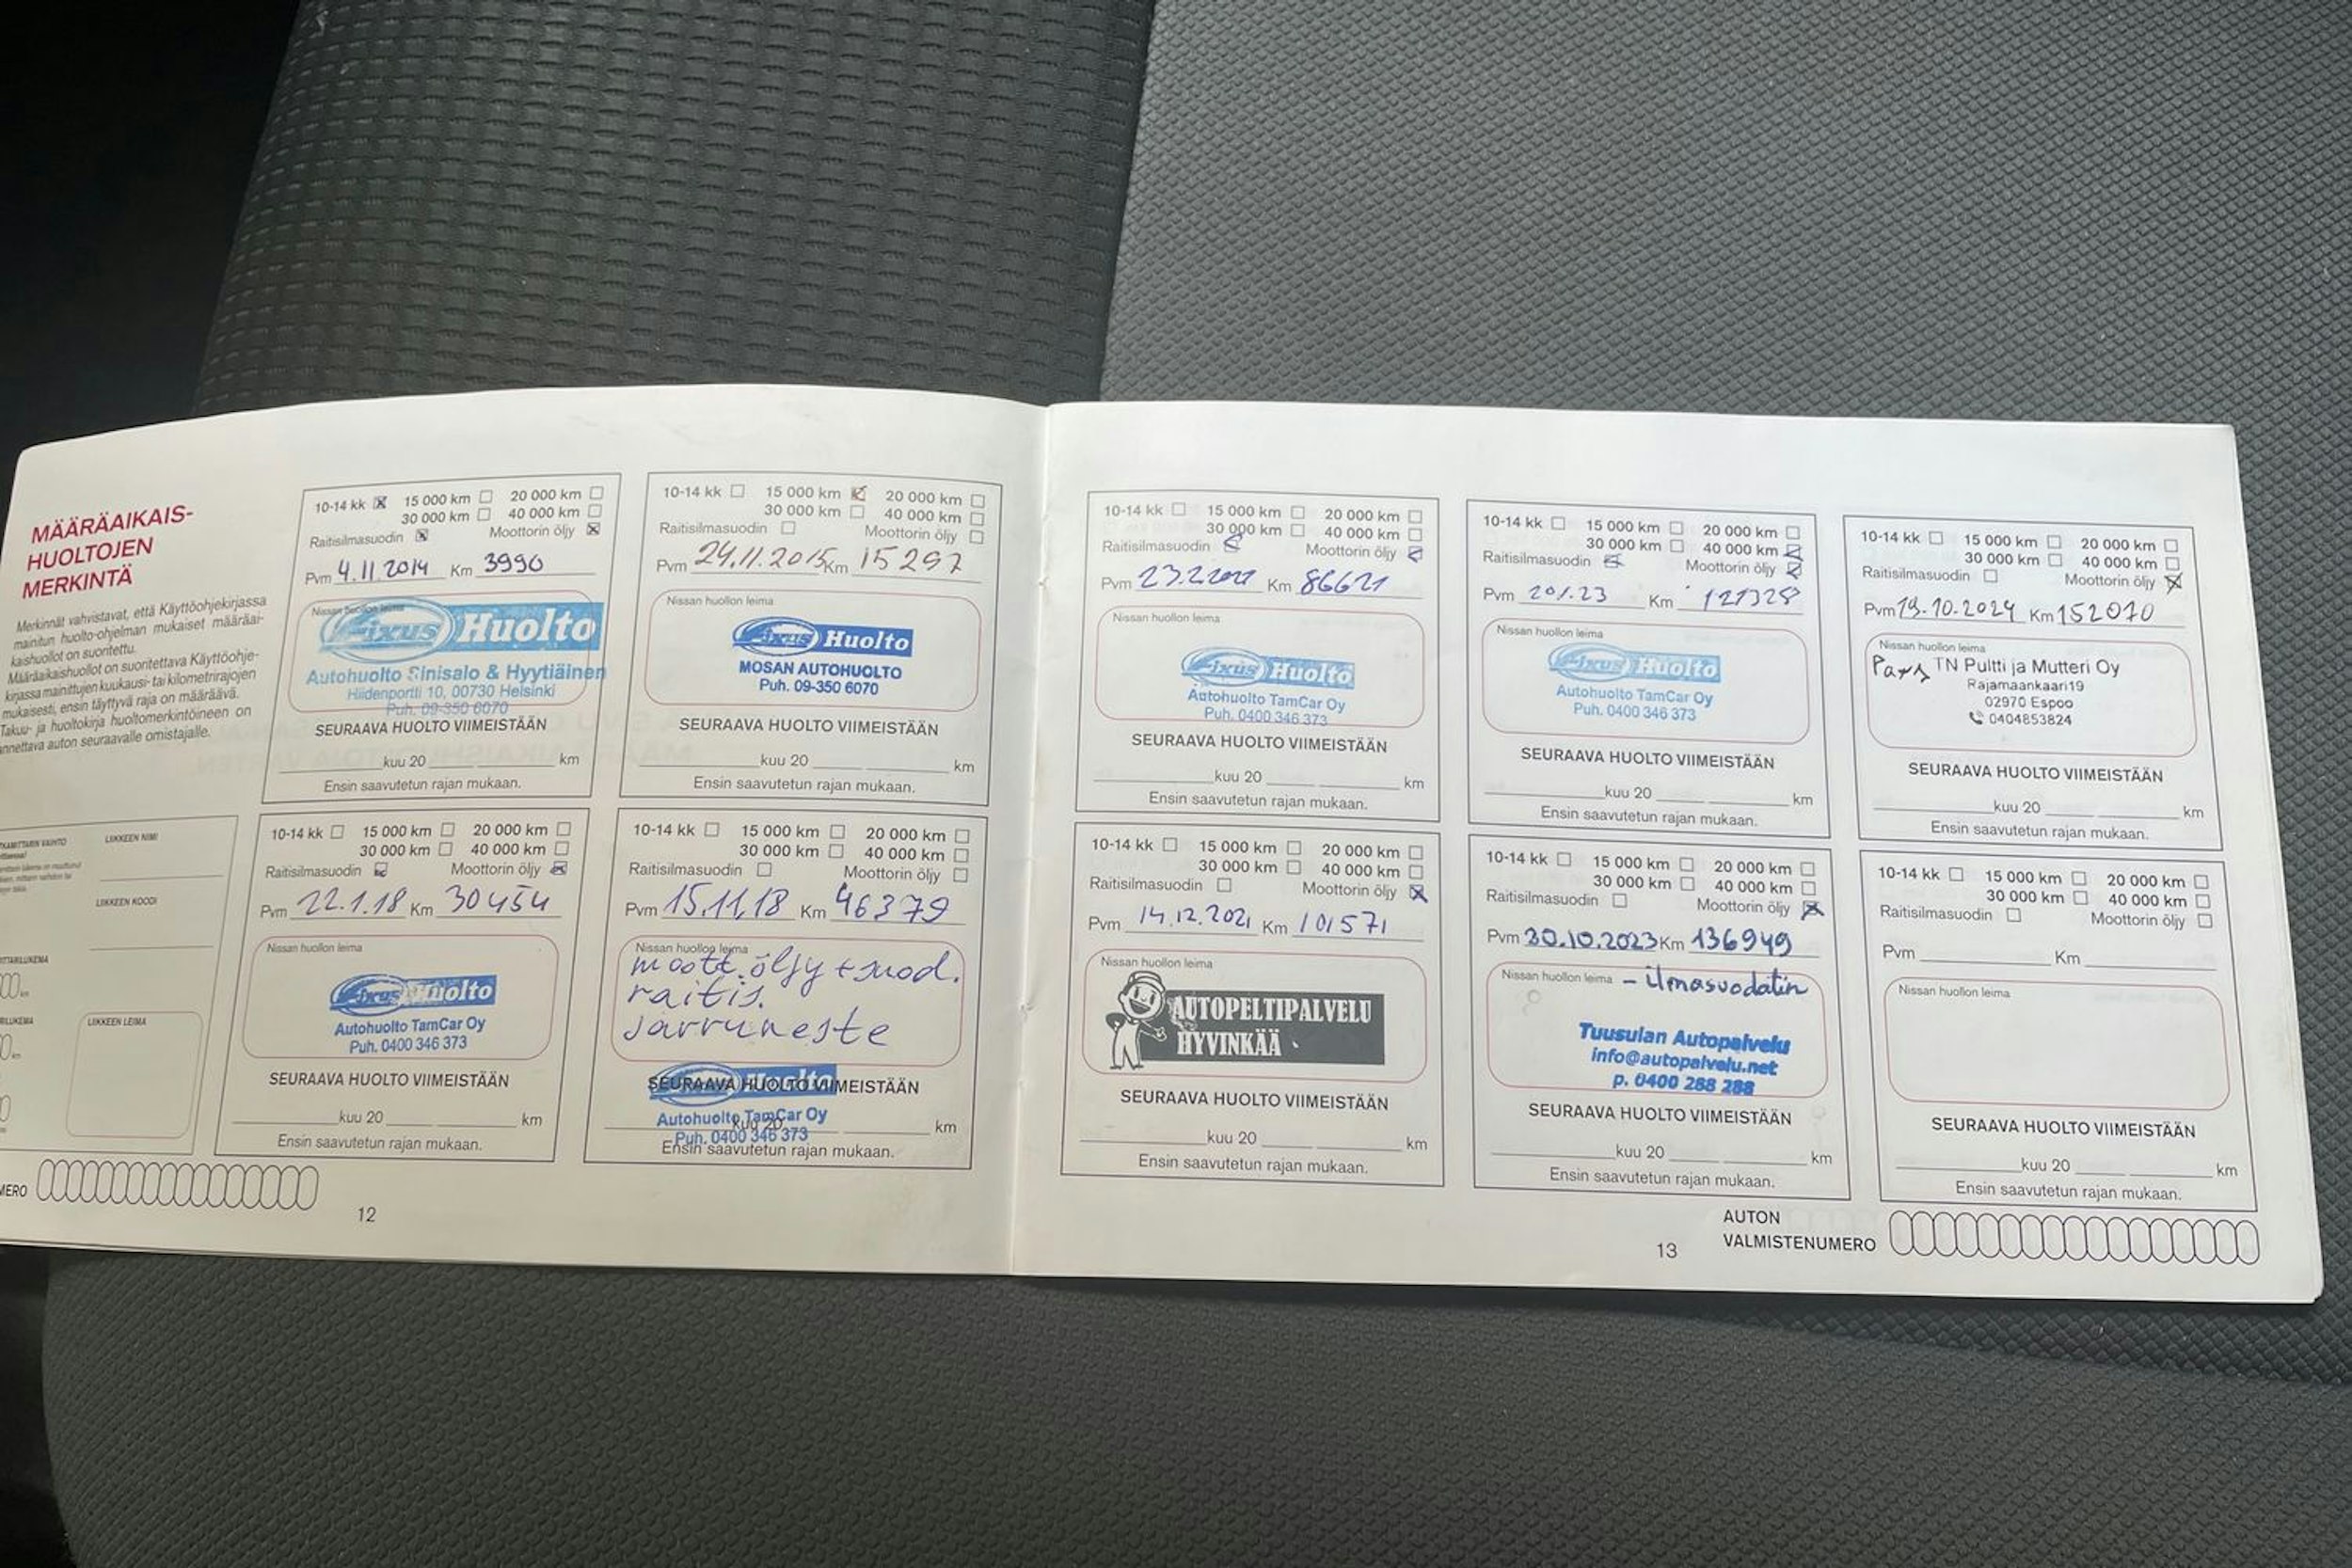 MÄÄRÄAIKAIS-
HUOLTOJEN
MERKINTÄ
Merkinnät vahvistavat, että Käyttöohjekirjassa
mainitun huolto-ohjelman mukaiset määräai-
kaishuollot on suoritettu.
Määräaikaishuollot on suoritettava Käyttöohje-
kirjassa mainittujen kuukausi- tai kilometrirajojen
mukaisesti, ensin täyttyvä raja on määräävä.
Takuu- ja huoltokirja huoltomerkintöineen on
annettava auton seuraavalle omistajalle.
LIIKKEEN NIMI
LIIKKEEN KOODI
LIIKKEEN LEIMA
10-14 kk 15 000 km 20 000 km
30 000 km 40 000 km
Raitisilmasuodin Moottorin öljy
Pvm 4.11.2014 Km 3990
Nissan huollon leima
Fixus Huolto
Autohuolto Sinisalo & Hyytiäinen
Hiidenportti 10, 00730 Helsinki
Puh. 09-350 6070
SEURAAVA HUOLTO VIIMEISTÄÄN
kuu 20 km
Ensin saavutetun rajan mukaan.
10-14 kk 15 000 km 20 000 km
30 000 km 40 000 km
Raitisilmasuodin Moottorin öljy
Pvm 24.11.2015 Km 15297
Nissan huollon leima
Fixus Huolto
MOSAN AUTOHUOLTO
Puh. 09-350 6070
SEURAAVA HUOLTO VIIMEISTÄÄN
kuu 20 km
Ensin saavutetun rajan mukaan.
10-14 kk 15 000 km 20 000 km
30 000 km 40 000 km
Raitisilmasuodin Moottorin öljy
Pvm 22.1.18 Km 30454
Nissan huollon leima
Fixus Huolto
Autohuolto TamCar Oy
Puh. 0400 346 373
SEURAAVA HUOLTO VIIMEISTÄÄN
kuu 20 km
Ensin saavutetun rajan mukaan.
10-14 kk 15 000 km 20 000 km
30 000 km 40 000 km
Raitisilmasuodin Moottorin öljy
Pvm 15.11.18 Km 46379
Nissan huollon leima
moott.öljy + suod.
raitis.
jarruneste
SEURAAVA HUOLTO VIIMEISTÄÄN
Fixus Huolto
Autohuolto TamCar Oy
kuu 20 km
Puh. 0400 346 373
Ensin saavutetun rajan mukaan.
12
10-14 kk 15 000 km 20 000 km
30 000 km 40 000 km
Raitisilmasuodin Moottorin öljy
Pvm 23.2.2021 Km 86621
Nissan huollon leima
Fixus Huolto
Autohuolto TamCar Oy
Puh. 0400 346 373
SEURAAVA HUOLTO VIIMEISTÄÄN
kuu 20 km
Ensin saavutetun rajan mukaan.
10-14 kk 15 000 km 20 000 km
30 000 km 40 000 km
Raitisilmasuodin Moottorin öljy
Pvm 20.1.23 Km 121328
Nissan huollon leima
Fixus Huolto
Autohuolto TamCar Oy
Puh. 0400 346 373
SEURAAVA HUOLTO VIIMEISTÄÄN
kuu 20 km
Ensin saavutetun rajan mukaan.
10-14 kk 15 000 km 20 000 km
30 000 km 40 000 km
Raitisilmasuodin Moottorin öljy
Pvm 19.10.2024 Km 152070
Nissan huollon leima
TN Pultti ja Mutteri Oy
Rajamaankaari19
02970 Espoo
0404853824
SEURAAVA HUOLTO VIIMEISTÄÄN
kuu 20 km
Ensin saavutetun rajan mukaan.
10-14 kk 15 000 km 20 000 km
30 000 km 40 000 km
Raitisilmasuodin Moottorin öljy
Pvm 14.12.2021 Km 101571
Nissan huollon leima
AUTOPELTIPALVELU
HYVINKÄÄ
SEURAAVA HUOLTO VIIMEISTÄÄN
kuu 20 km
Ensin saavutetun rajan mukaan.
10-14 kk 15 000 km 20 000 km
30 000 km 40 000 km
Raitisilmasuodin Moottorin öljy
Pvm 30.10.2023 Km 136949
Nissan huollon leima - ilmasuodatin
Tuusulan Autopalvelu
info@autopalvelu.net
p. 0400 288 288
SEURAAVA HUOLTO VIIMEISTÄÄN
kuu 20 km
Ensin saavutetun rajan mukaan.
10-14 kk 15 000 km 20 000 km
30 000 km 40 000 km
Raitisilmasuodin Moottorin öljy
Pvm Km
Nissan huollon leima
SEURAAVA HUOLTO VIIMEISTÄÄN
kuu 20 km
Ensin saavutetun rajan mukaan.
13
AUTON
VALMISTENUMERO